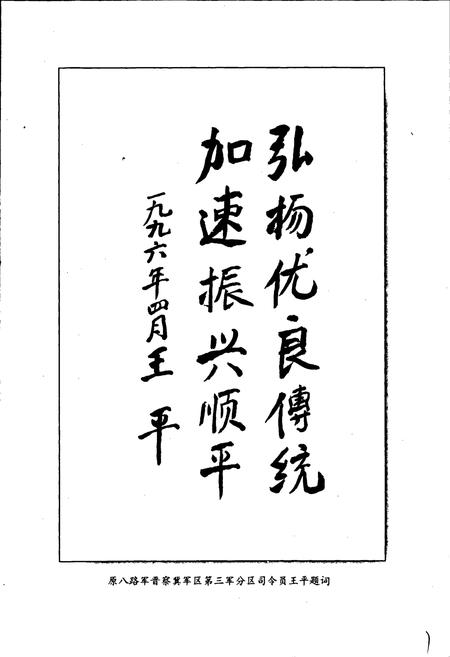 弘扬优良傳统
加速振兴顺平
一九九六年四月王平
原八路军晋察冀军区第三军分区司令员王平题词